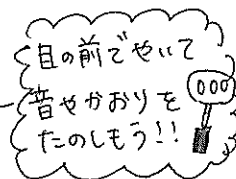 目の前でやいて
音やかおりを
たのしもう!!